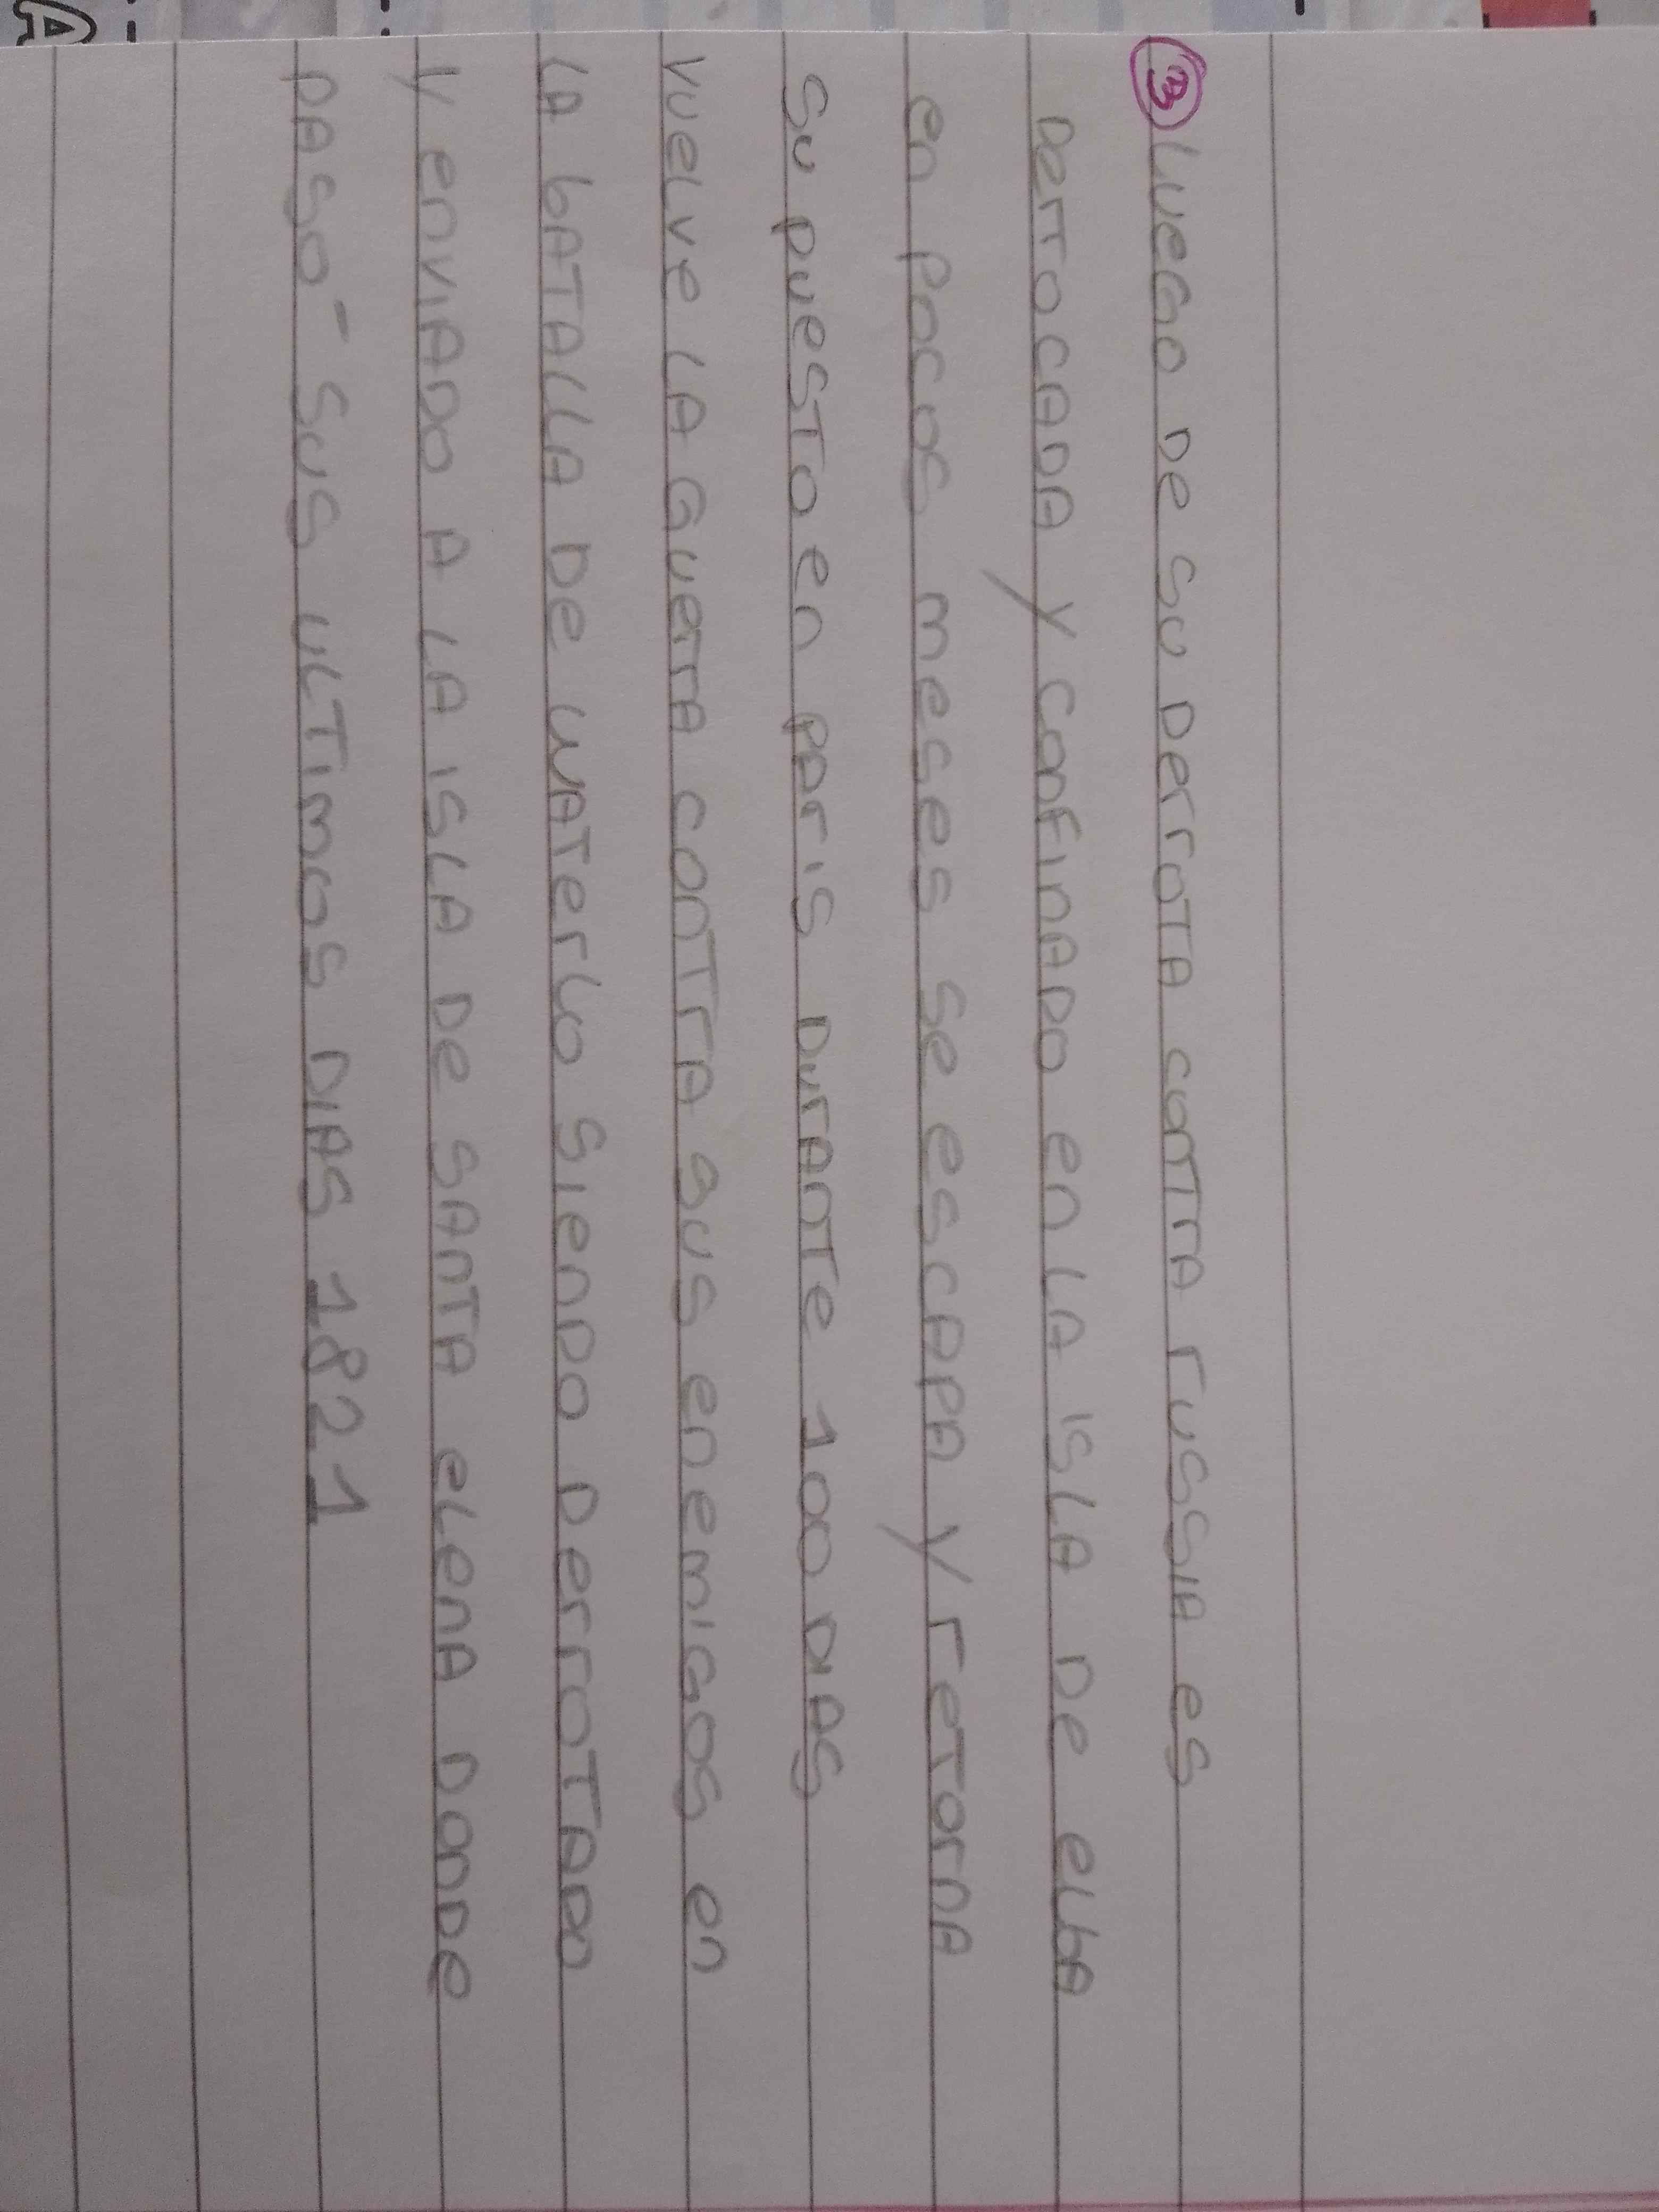 ③ Luego De su Derrota contra russia es
Derrocada y confinado en la isla De elba
en pocos meses se escapa y retorna
su puesto en paris Durante 100 Dias
vuelve la Guerra contra sus enemigos en
la batalla De waterlo siendo Derrotado
y enviado a la isla De santa elena Donde
paso- sus ultimos Dias 1821